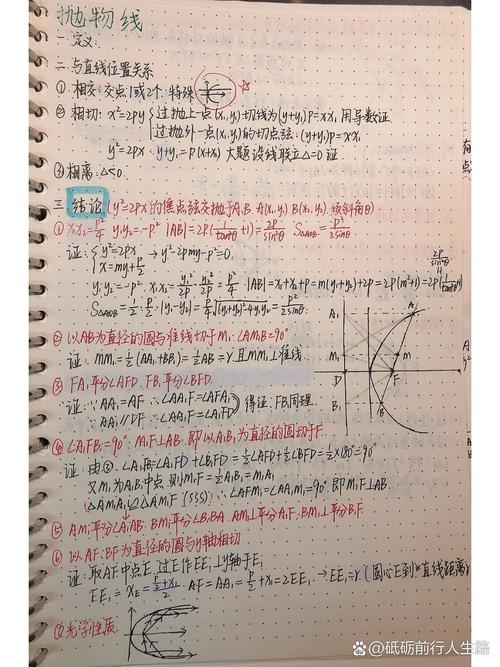 抛物线
一.定义:
二.与直线位置关系
① 相交:交点1或2个.特殊
② 相切: x²=2py {过抛上一点(x₁,y₁)切线为(y+y₁)p=xx₁ 用导数证
过抛外一点(x₁,y₁)的切点弦:(y+y₁)p=xx₁
y²=2px: y·y₁=p(x+x₁) 大题设线联立△=0证
③ 相离:△<0.
三.结论(y²=2px的焦点弦交抛于A,B. A(x₁,y₁) B(x₂,y₂) 倾斜角θ)
① x₁x₂=p²/4 y₁y₂=-p² |AB|=2p(1/tan²θ+1)=2p/sin²θ S△AOB=p²/2sinθ
证:{y²=2px
x=my+p/2 → y²-2pmy-p²=0.
y₁y₂=-p² x₁x₂=y₁²/2p·y₂²/2p=p²/4 |AB|=x₁+x₂+p=m(y₁+y₂)+2p=2p(m²+1)=2p(1/tan²θ+1)
2p/sin²θ
S△AOB=1/2·p/2·|y₁-y₂|=p/4√(y₁+y₂)²-4y₁y₂=p²/2sinθ
② 以AB为直径的圆与准线切于M₁.∠AM₁B=90°
证: MM₁=1/2(AA₁+BB₁)=1/2AB=r 且MM₁⊥准线
③ FA₁平分∠AFD. FB₁平分∠BFD.
证:∵AA₁=AF ∴∠AA₁F=∠AFA₁
∵AA₁∥DF ∴∠AA₁F=∠A₁FD} 得证.FB₁同理
④ ∠A₁FB₁=90° M₁F⊥AB.即以A₁B₁为直径的圆切于F
证:由③.∠A₁FB₁=∠A₁FD+∠B₁FD=1/2∠AFD+1/2∠BFD=1/2×180°=90°
又M₁为A₁B₁中点 则M₁F=1/2A₁B₁=M₁A₁
△AM₁A₁≌△AM₁F (SSS) ∴∠AFM₁=∠AA₁M₁=90°即M₁F⊥AB.
⑤ AM₁平分∠A₁AB. BM₁平分∠B₁BA. AM₁⊥平分A₁F. BM₁⊥平分B₁F
⑥ 以AF.BF为直径的圆与y轴相切
证:取AF中点E 过E作EE₁⊥y轴于E₁
EE₁=xE=(p/2+x₁)/2. AF=AA₁=p/2+x₁=2EE₁ → EE₁=r (圆心E到"直线距离)
⑦ 光学性质.
A₁
A
M₁
M
D
F
B₁
B
有
点
@砥砺前行人生路